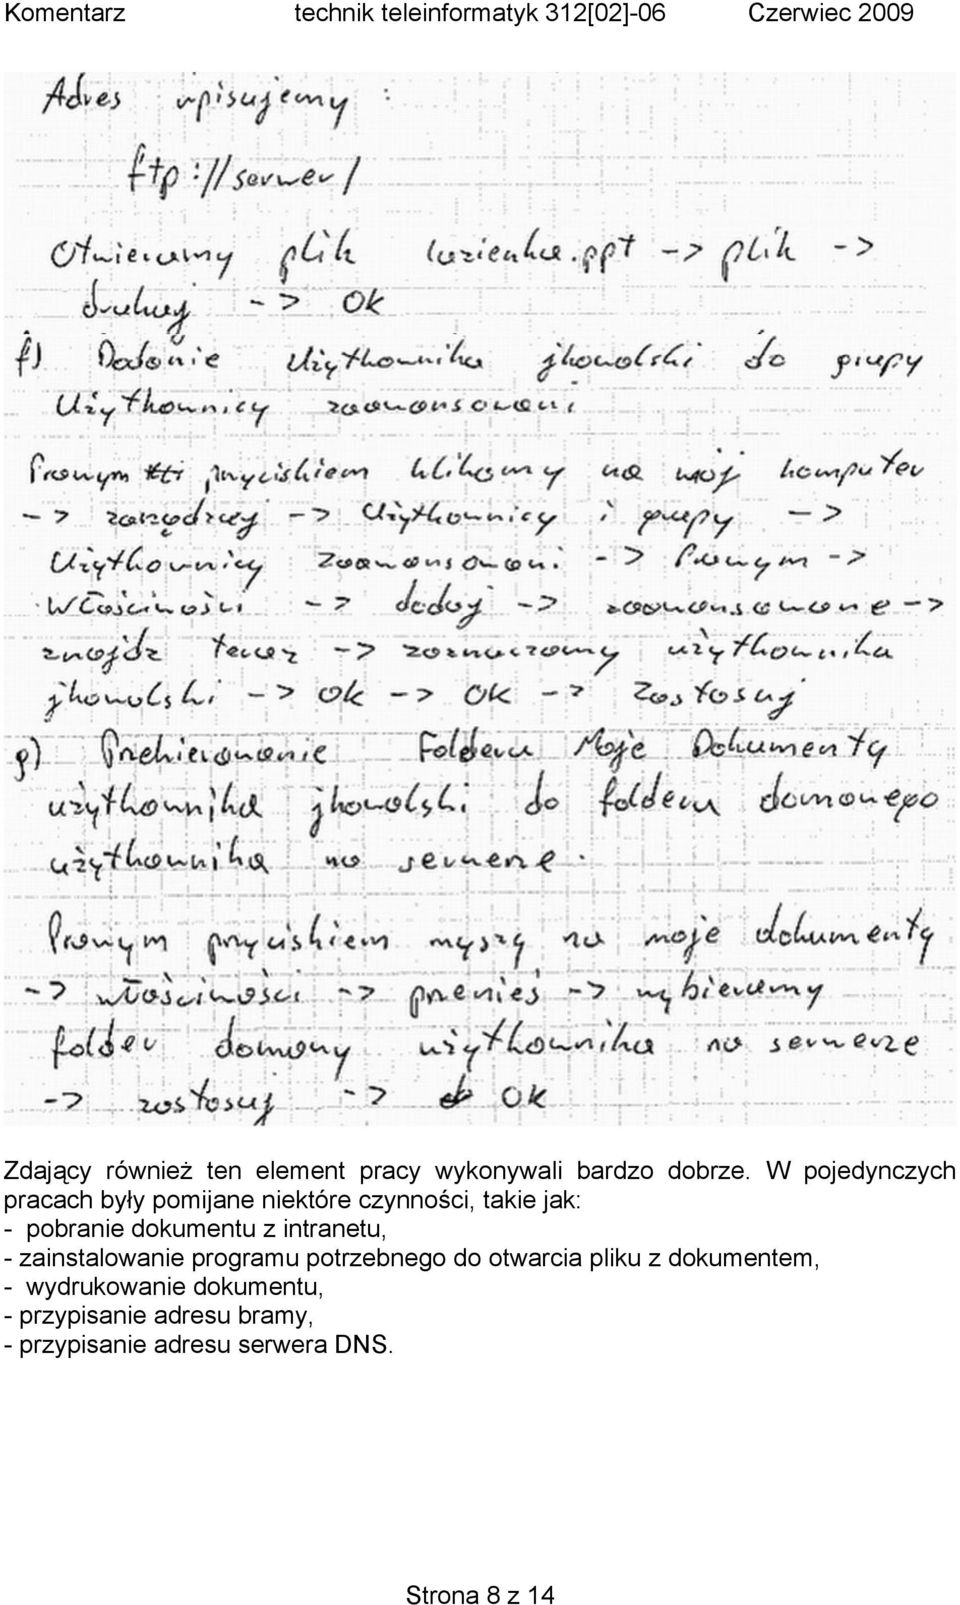 Komentarz technik teleinformatyk 312[02]-06 Czerwiec 2009
Adres wpisujemy :
ftp://serwer/
Otwieramy plik lazienka.ppt -> plik ->
drukuj -> Ok
f) Dodanie użytkownika jkowalski do grupy
Użytkownicy zaawansowani
Prawym przyciskiem klikamy na mój komputer
-> zarządzaj -> Użytkownicy i grupy ->
Użytkownicy zaawansowani -> Prawym ->
Właściwości -> dodaj -> zaawansowane ->
znajdz teraz -> zaznaczamy użytkownika
jkowalski -> ok -> OK -> Zastosuj
g) Przekierowanie Folderu Moje Dokumenty
użytkownika jkowalski do folderu domowego
użytkownika na serwerze.
Prawym przyciskiem myszą na moje dokumenty
-> właściwości -> przenieś -> wybieramy
folder domowy użytkownika na serwerze
-> zastosuj -> OK
Zdający również ten element pracy wykonywali bardzo dobrze. W pojedynczych
pracach były pomijane niektóre czynności, takie jak:
- pobranie dokumentu z intranetu,
- zainstalowanie programu potrzebnego do otwarcia pliku z dokumentem,
- wydrukowanie dokumentu,
- przypisanie adresu bramy,
- przypisanie adresu serwera DNS.
Strona 8 z 14